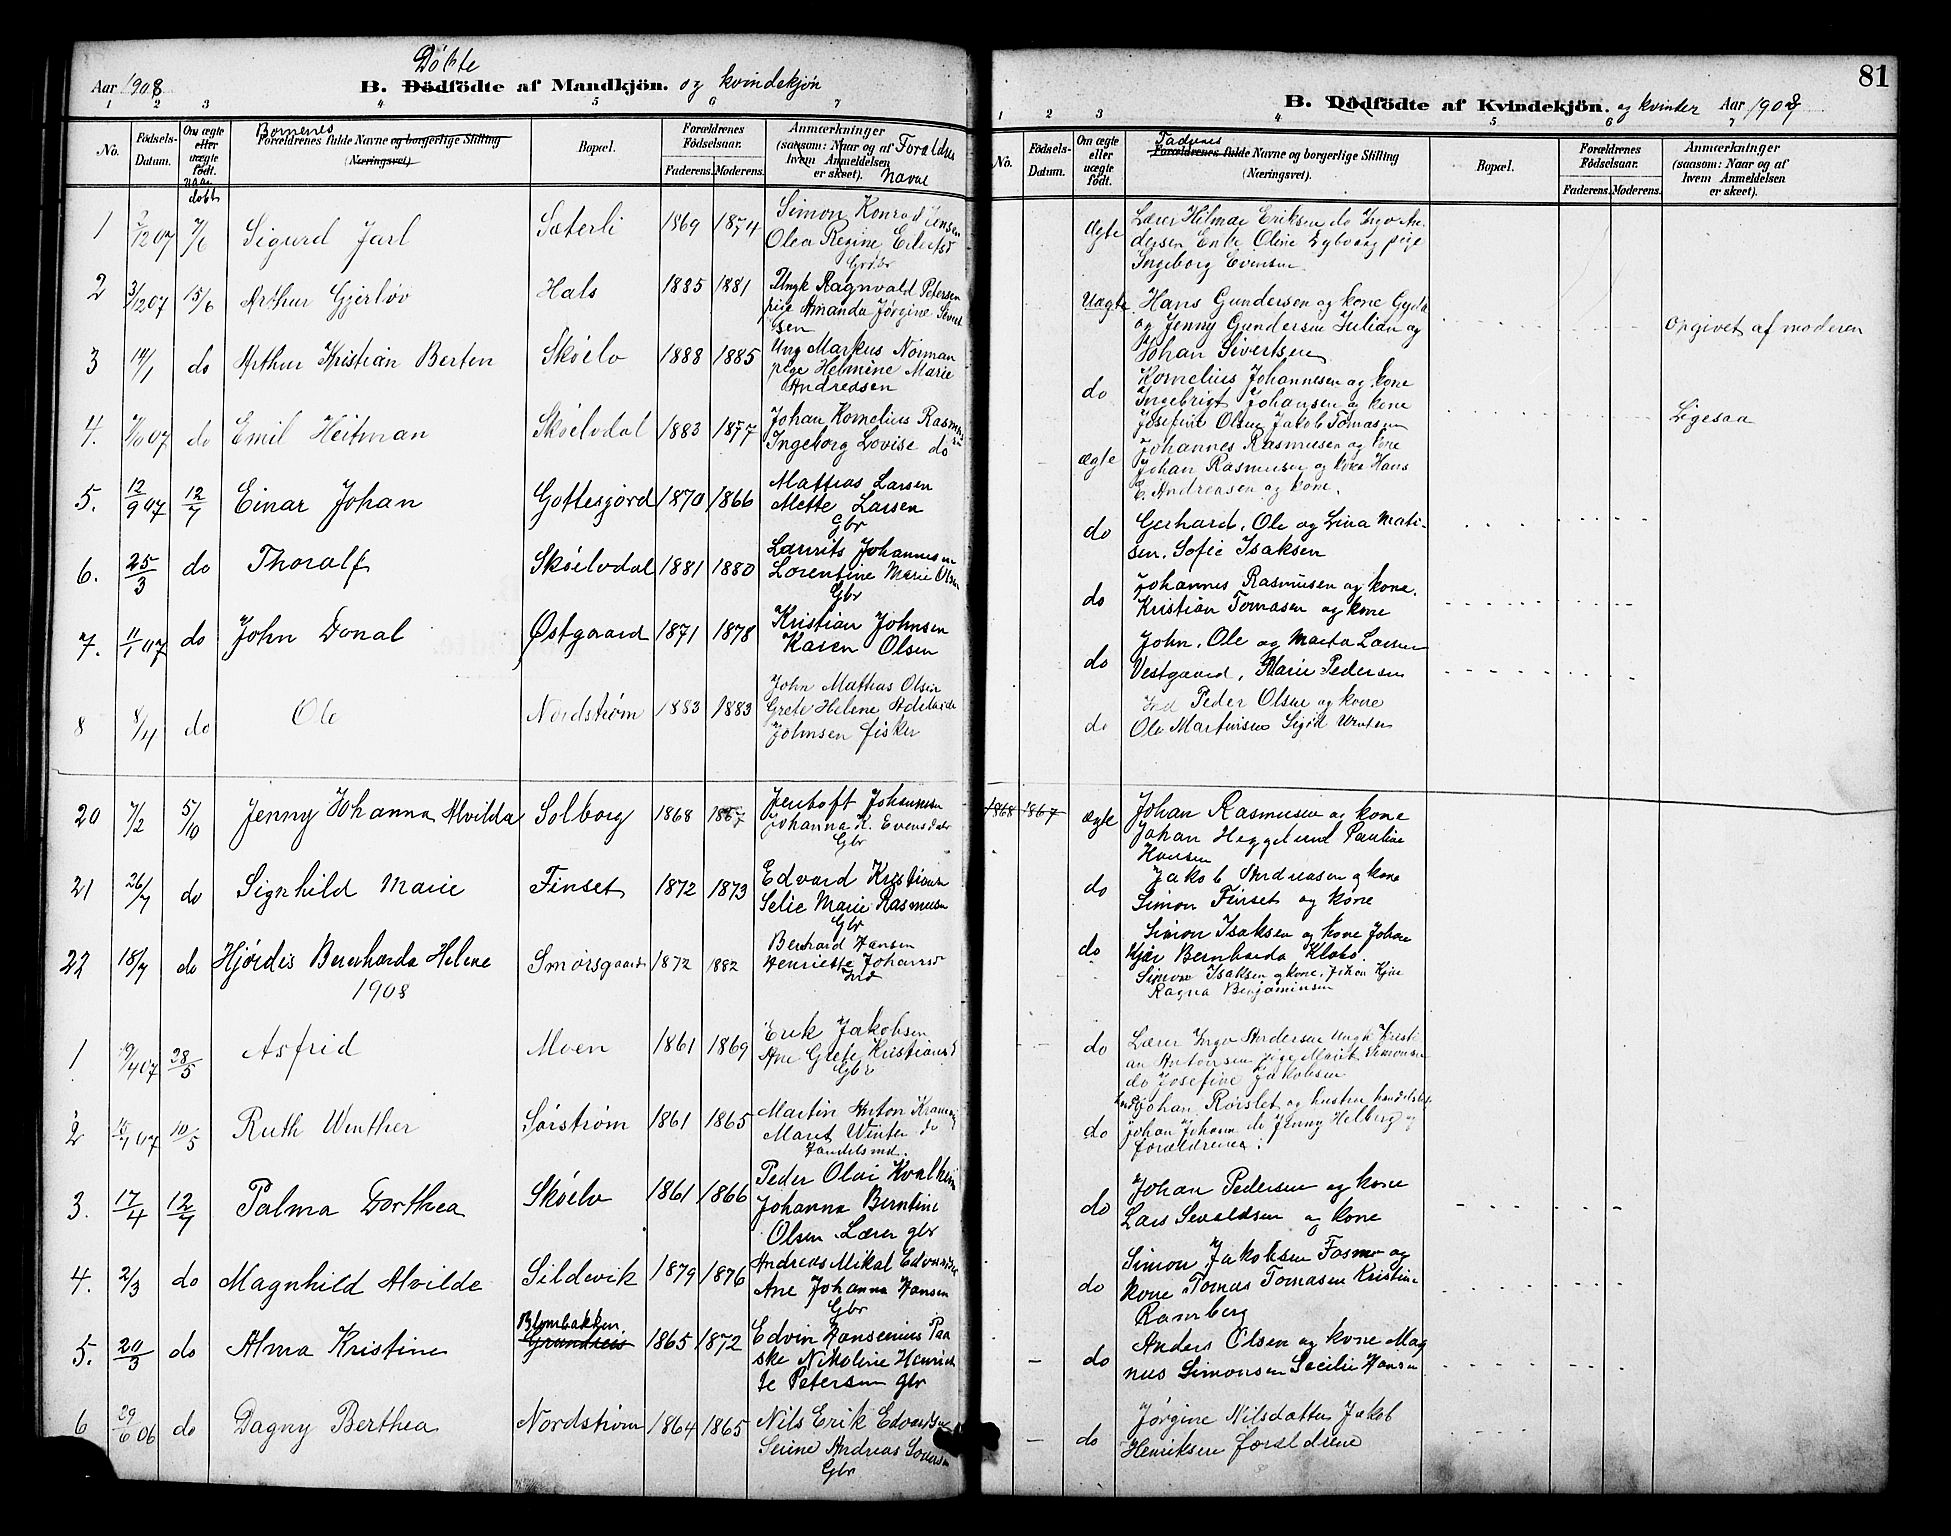 Aar 1908
Döbte
B. Dödfödte af Mandkjön. og kvindekjön
1 2 3 4 5 6 7
No.
Födsels-Datum.
Om ægte eller uægte födt.
naar døbt
Börnenes
Forældrenes fulde Navne og borgerlige Stilling
(Næringsvei).
Bopæl.
Forældrenes Födselsaar.
Faderens. Moderens.
Anmærkninger
(saasom: Naar og af hvem Anmeldelsen er skeet).
Forældres Navne
1 2/12 07 7/6 Sigurd Jarl Sæterli 1869 1874 Simon Konrad Jensen
Olea Regine Eilertsd
Gbr
2 3/12 07 15/6 Arthur Gjerløv Hals 1885 1881 Ungk Ragnvald Petersen
pige Amanda Jørgine Sivert
sen
3 14/1 do Arthur Kristian Berten Skøelv 1888 1885 Ung Markus Norman
pige Helmine Marie
Andreasen
4. 7/10 07 do Emil Heitman Skøelvdal 1883 1877 Johan Kornelius Rasmus
Ingeborg Lovise do
5. 12/9 07 12/7 Einar Johan Gottesjord 1870 1866 Mathias Larsen
Mette Larsen
Gbr
6. 25/3 do Thoralf Skøelvdal 1881 1880 Laurits Johannesen
Lorentine Marie Olsen
Gbr
7. 11/1 07 do John Donal Østgaard 1871 1878 Kristian Johnsen
Karen Olsen
8 8/4 do Ole Nordstrøm 1883 1883 John Mathias Olsen
Grete Helene Adelaide
Johnsen fisker
20 7/2 5/10 Jenny Johanna Alvilda Solborg 1868 1867 Jentoft Johannesen
Johanna K. Evensdatter
Gbr
21 26/7 do Signhild Marie Finset 1872 1873 Edvard Kristiansen
Selie Marie Rasmusen
Gbr
22 18/7 do Hjördis Bernharda Helene Smørsgaard 1872 1882 Bernhard Hansen
Henriette Johannsd
1908
1 19/4 07 28/5 Asfrid Moen 1861 1869 Erik Jakobsen
Ane Grete Kristiansd
Gbr
2 07 10/5 Ruth Winther Sørstrøm 1861 1865 Martin Anton Kramer
Maret Winter do
Handelsmd.
3. 17/4 12/7 Palma Dorthea Skøelv 1861 1866 Peder Olai Kvalheim
Johanna Berntine
Olsen Lærer gbr
4. 2/3 do Magnhild Alvilde Sildevik 1879 1876 Andreas Mikal Edvardsen
Ane Johanna Hansen
Gbr
Blombakken
5. 20/3 do Alma Kristine 1865 1872 Edvin Hansenius Paa
ske Nikoline Henriet
te Petersen gbr
6 29/6 06 do Dagny Berthea Nordstrøm 1864 1865 Nils Erik Edvardsen
Serine Andreas
Gbr
81
B. Dödfödte af Kvindekjön. og kvinder Aar 1908
1 2 3 4 5 6 7
No.
Födsels-Datum.
Om ægte eller uægte födt.
Fadernes
Forældrenes fulde Navne og borgerlige Stilling
(Næringsvei).
Bopæl.
Forældrenes Födselsaar.
Faderens. Moderens.
Anmærkninger
(saasom: Naar og af hvem Anmeldelsen er skeet).
Ægte Lærer Hilmar Eriksen do Ingv. An
dersen Enke Oline Dybvaag pige
Ingeborg Evensen
Uægte Hans Gundersen og kone Gyda
og Jenny Gundersen Julian og
Johan Sivertsen
Opgivet af moderen
do Kornelius Johannesen og kone
Ingebrigt Johansen og kone
Josefine Olsen Jakob Tomasen
Ligesaa
ægte Johannes Rasmusen og kone
Johan Rasmusen og kone Hans
Andreasen og kone.
do Gerhard, Ole og Lina Mati-
sen. Sofie Isaksen
do Johannes Rasmusen og kone.
Kristian Tomasen og kone
do John, Ole og Marta Larsen
Vestgaard, Marie Pedersen
Peder Olsen og kone
do Ole Martinsen Sigrid
1868 1867 ægte Johan Rasmusen og kone
Johan Heggelund Pauline
Hansen
do Jakob Andreasen og kone
Simon Finset og kone
do Simon Isaksen og kone Johan
Kjær Bernharda Klobø.
Simon Isaksen og kone. Johan Kjær
Ragna Benjaminsen
do Lærer Ingv Andersen Ungk Kristi
an Antonsen pige Marit Simonsen
do Josefine Jakobsen
Johan Rørslet og hustru handelsbet.
do Johan Johans do Jenny Helberg og
forældrene.
do Johan Pedersen og kone
Lars Sevaldsen og kone
Simon Jakobsen Fosmo og
do kone Tomas Tomasen Kristine
Ramberg
Anders Olsen og kone Mag
do nus Simonsen Secilie Hansen
Jørgine Nilsdatter Jakob
do Henriksen forældrene